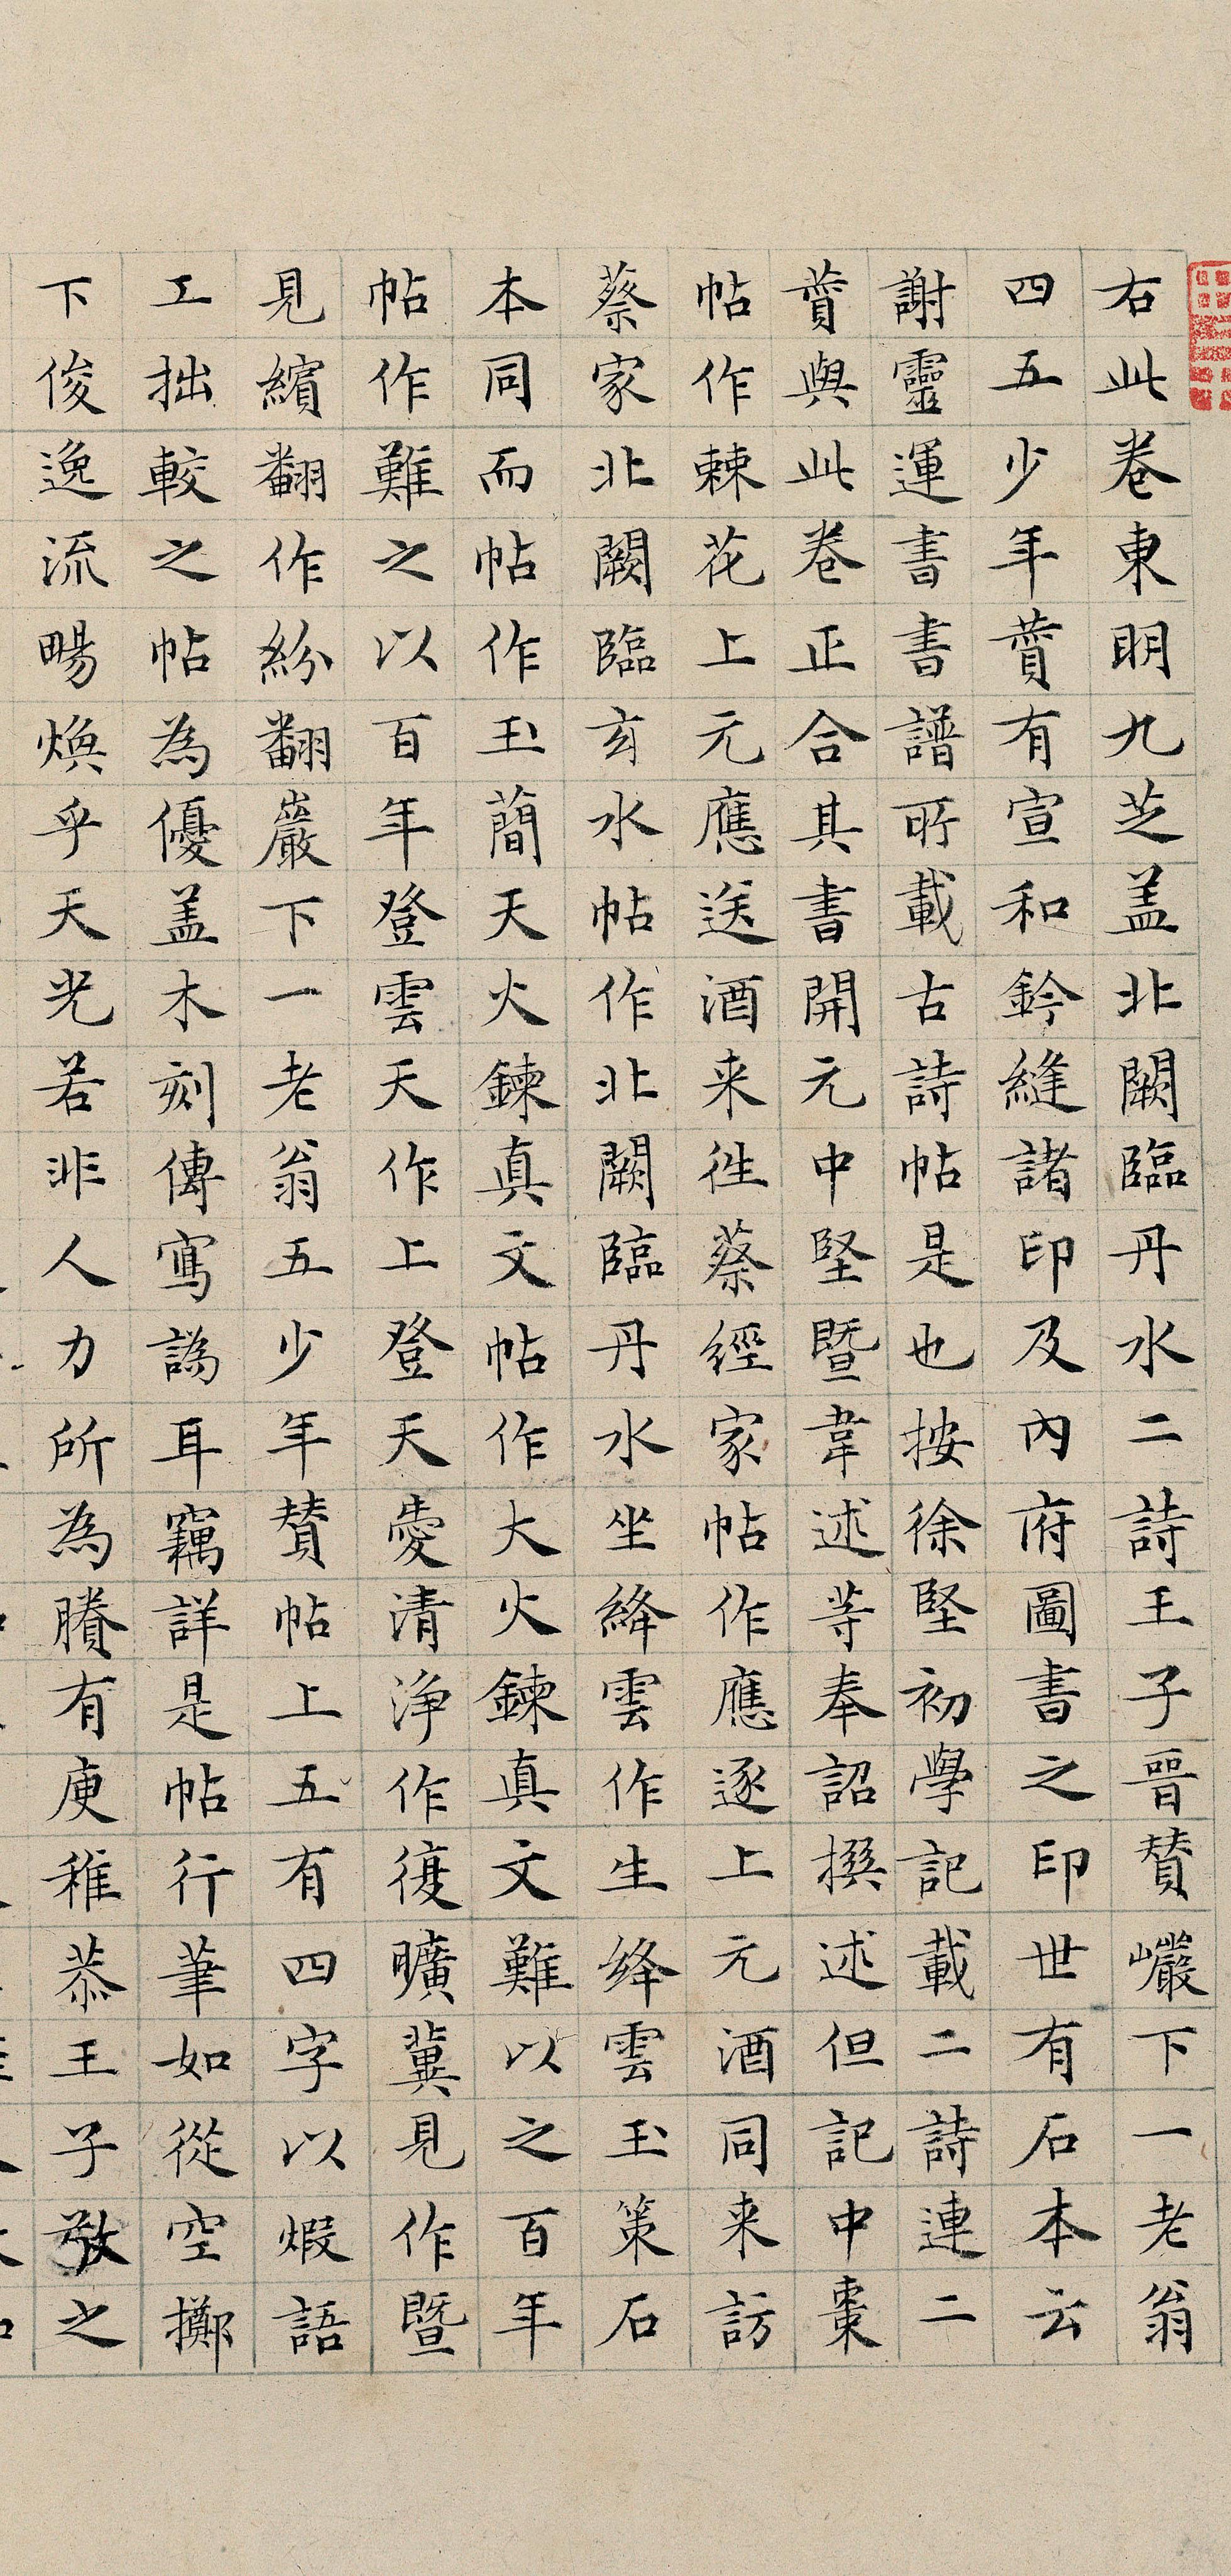 右此卷東明九芝盖北闕臨丹水二詩王子晉賛巖下一老翁
四五少年賛有宣和鈐縫諸印及內府圖書之印世有石本云
謝靈運書書譜所載古詩帖是也按徐堅初學記載二詩連二
賛與此卷正合其書開元中堅暨韋述等奉詔撰述但記中棗
帖作棘花上元應送酒来徃蔡經家帖作應逐上元酒同来訪
蔡家北闕臨玄水帖作北闕臨丹水坐絳雲作生絳雲玉策石
本同而帖作玉蕳天火鍊真文帖作大火鍊真文難以之百年
帖作難之以百年登雲天作上登天愛清浄作復曠冀見作暨
見繽翻作紛翻巖下一老翁五少年賛帖上五有四字以煆語
工拙較之帖為優盖木刻傳寫譌耳竊詳是帖行筆如從空擲
下俊逸流暢煥乎天光若非人力所為賸有庾稚恭王子敬之